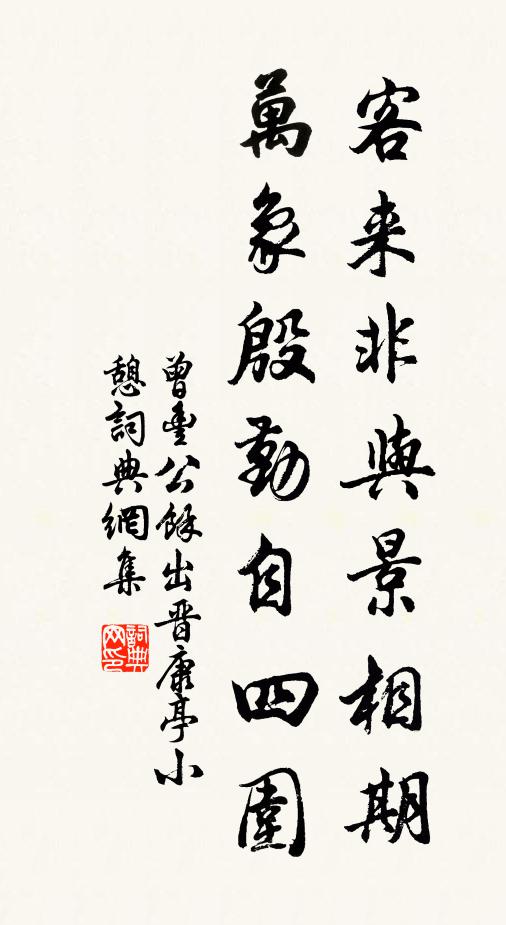 客来非與景相期
萬象殷勤自四圍
曾豊公餘出晋康亭小
憩詞典網集
詞典
网印